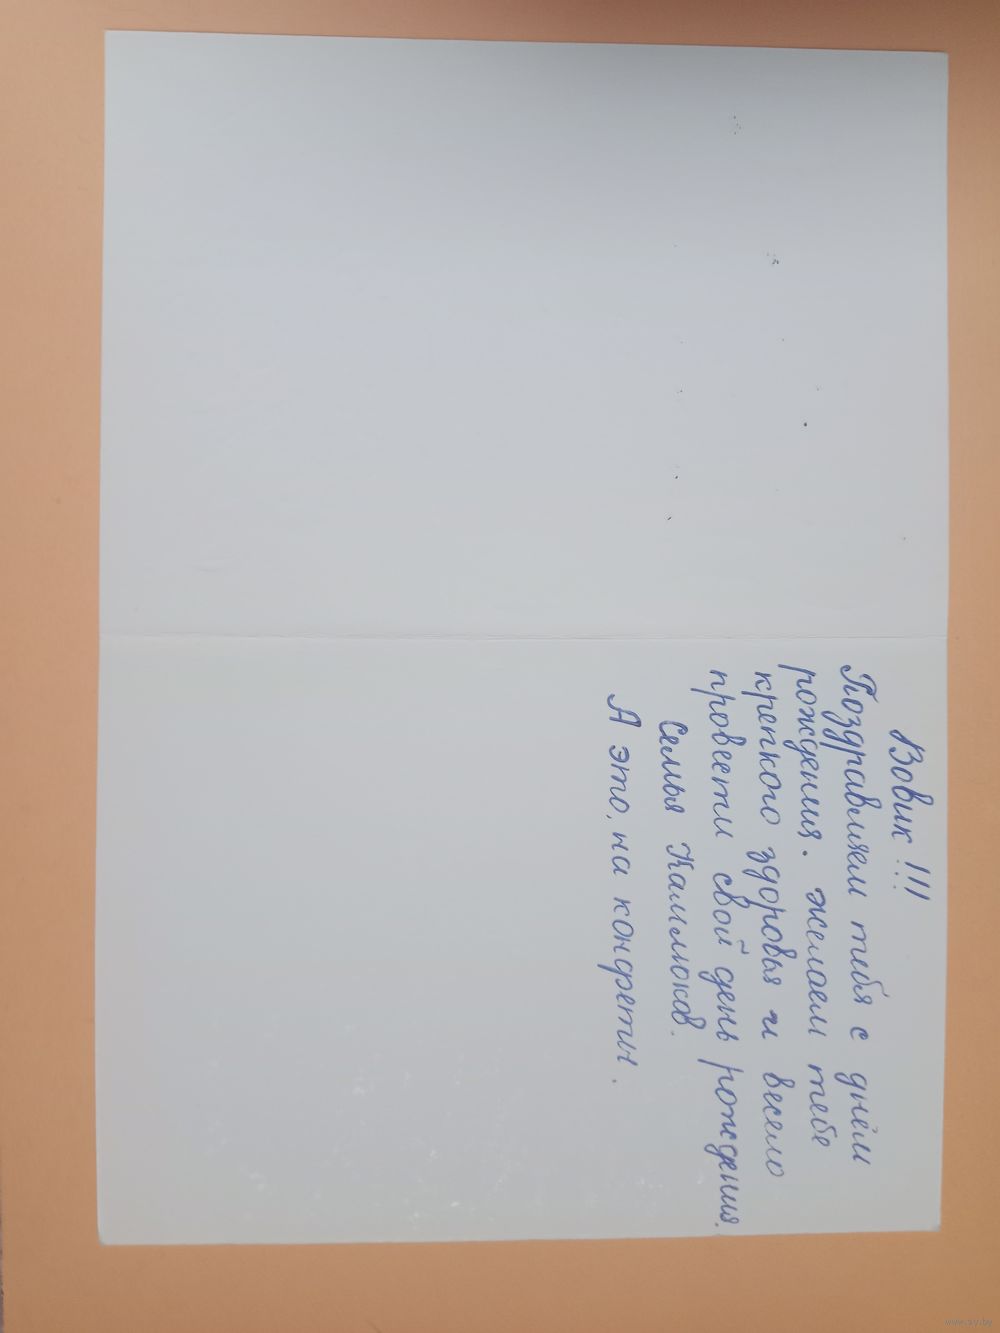 Вовик!!!
Поздравляем тебя с днём
рождения. желаем тебе
крепкого здоровья и весело
провести свой день рождения.
Семья Камлюков.
А это, на конфеты.
www.ay.by